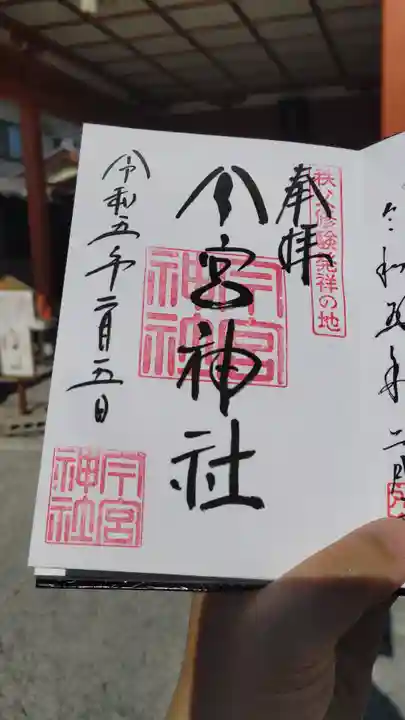 奉拝
秩父修験発祥の地
今宮神社
今宮
神社
令和五年二月五日
今宮
神社
令和五年二月